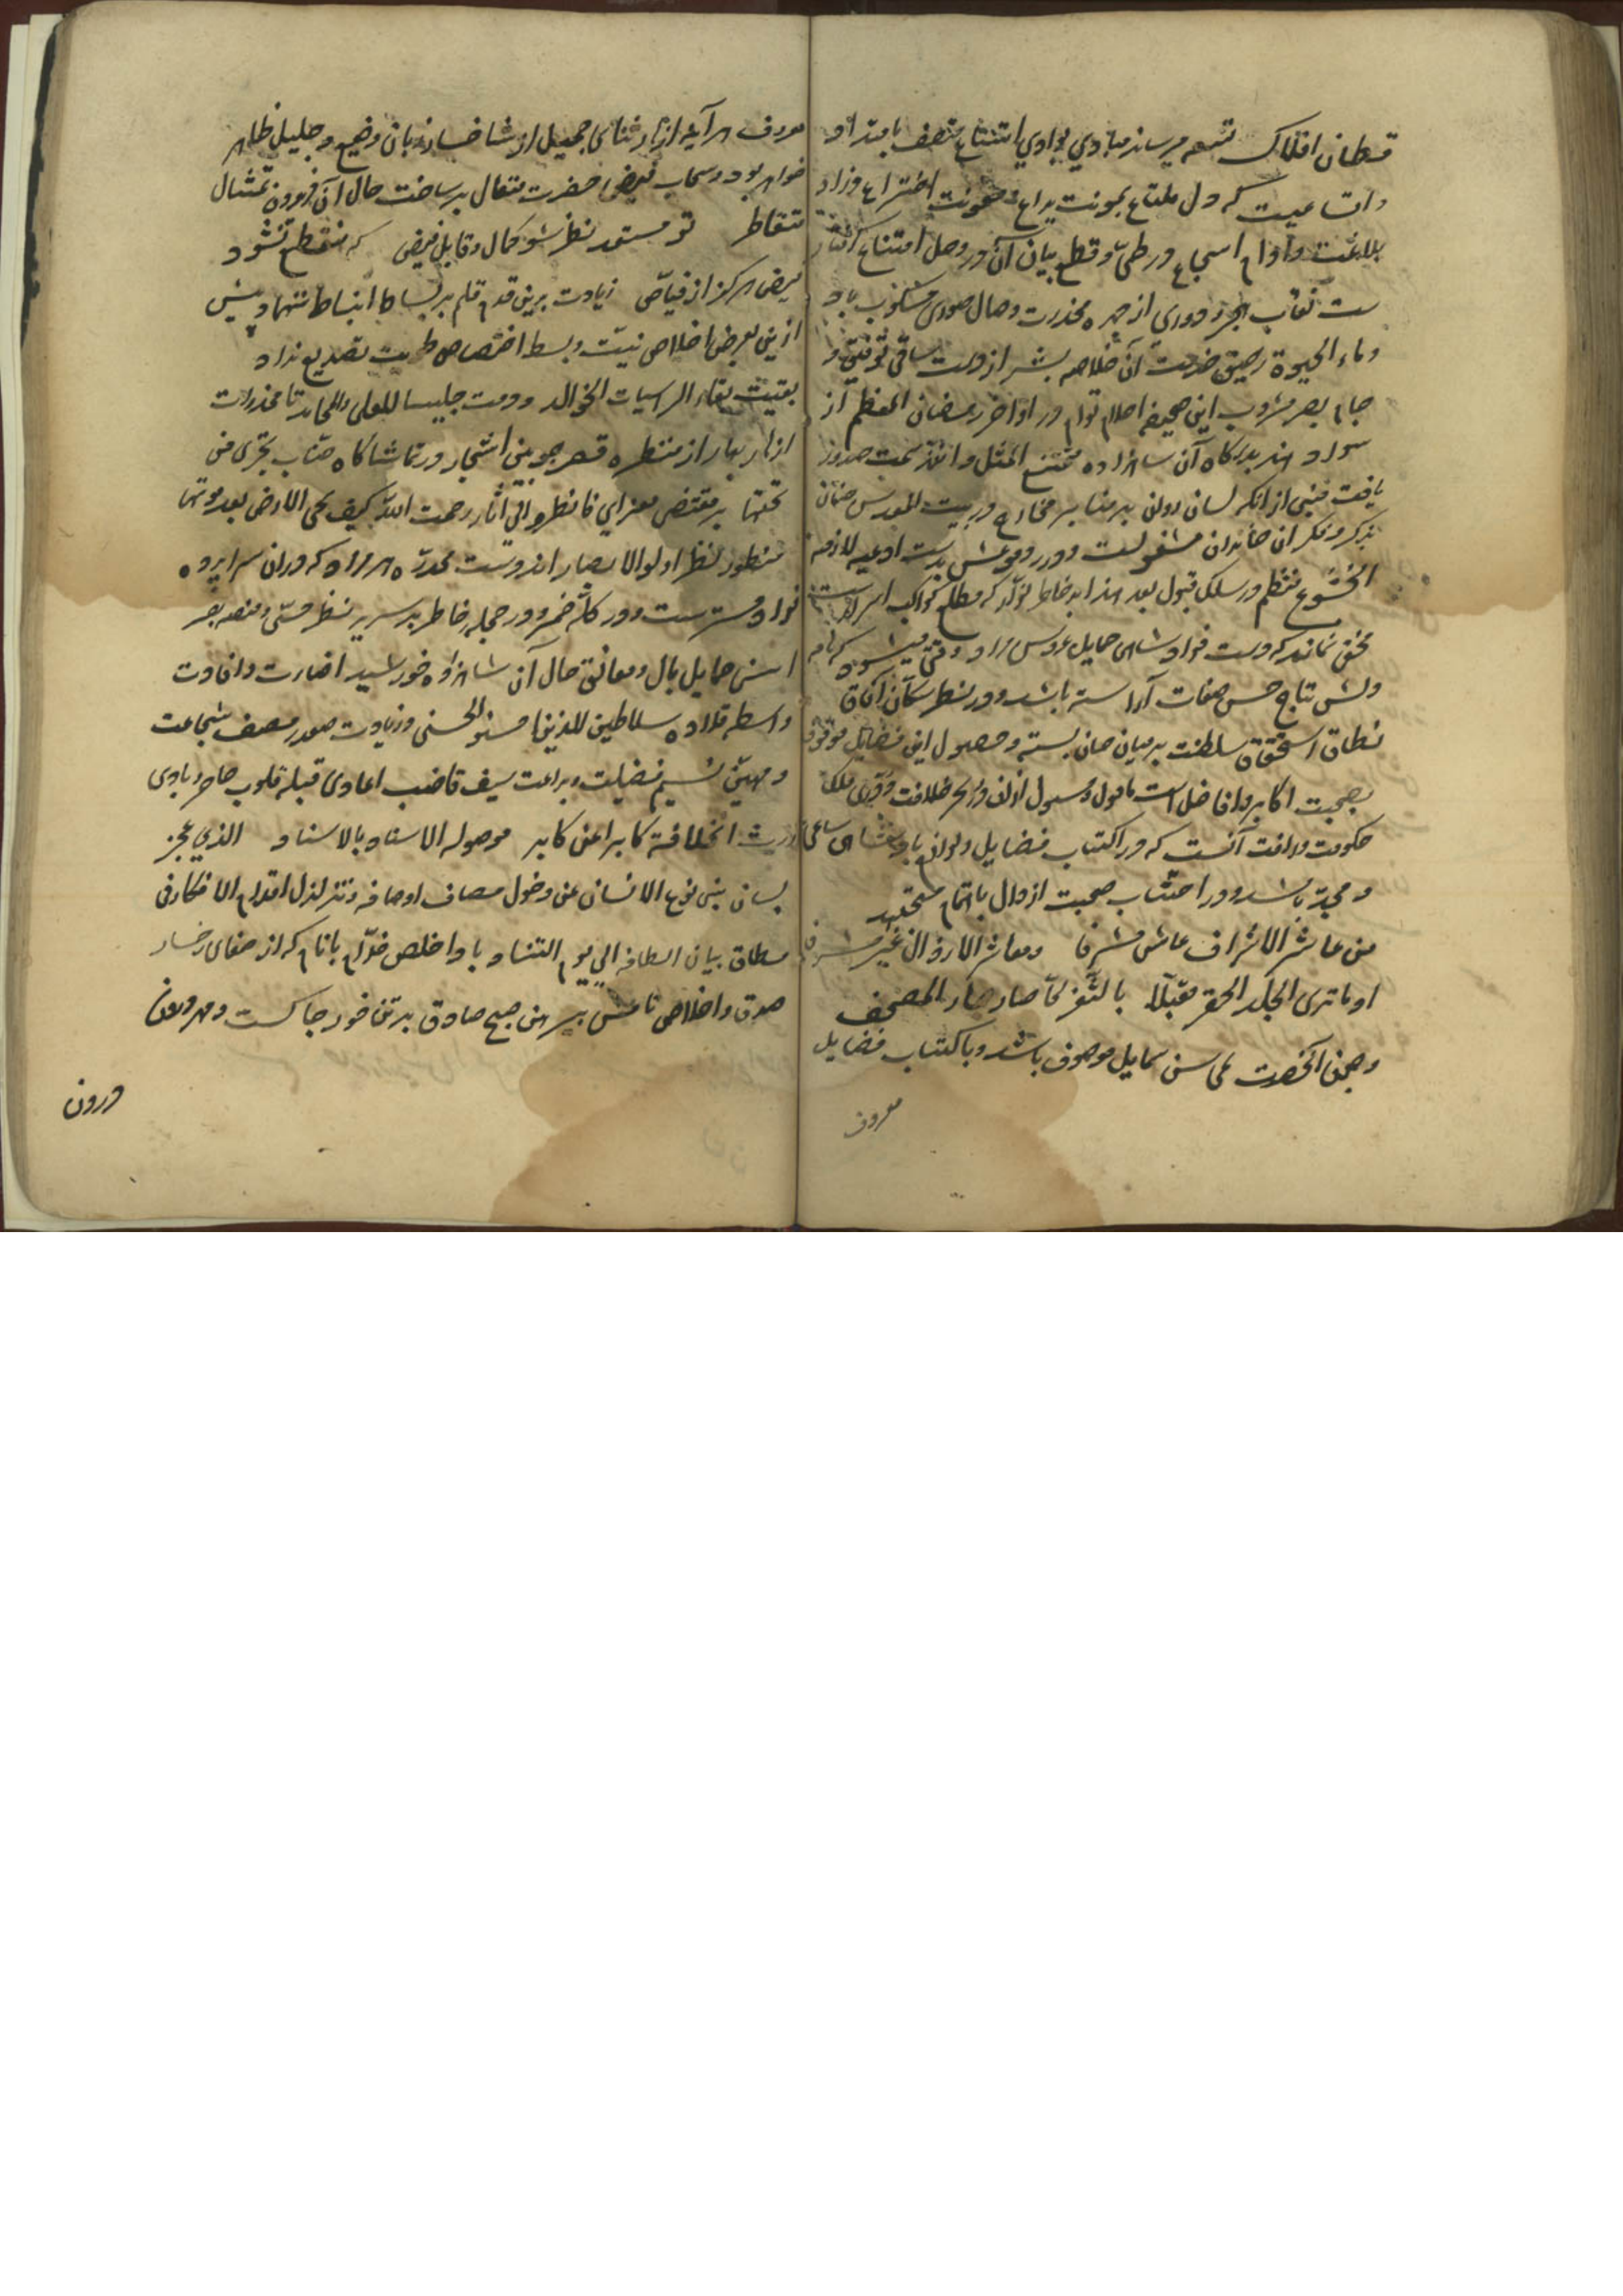 قطان افلاک تسعه میرساند مبادی بوادی امتناع متصف بامتداد
واتساعیست که دل ملتاع بمونت یراع و معونت اختراع وزاد
بلاغت وادوام اسجاع در طی و قطع بیان آن در وحل امتناع
ست نقاب هجر و دوری از چهره مخدرت وصال صوری مسکوب باد
وماء الحیوة رحیق خدمت آن خلاصه بشر از دست ساقی توفیق در
جام بصر مشروب این صحیفه اخلاص توام در اواخر رمضان المعظم از
سواد هند بدرگاه آن شاهزاده ممتنع المثل والند سمت صدور
یافت مبنی از آنکه لسان روان بر منابر مخارج در بیت المقدس جنان
بذکر و فکر ان خاندان مشغولست و درر دموعش بدست ادعیه لازمة
الخشوع منتظم در سلک قبول بعد هذا بر خاطر نواد که مطلع کواکب اسرارست
مخفی نماند که دست فواد شاهی حمایل عروس مراد وقتی میشود که نام
ولش بتاج حسن صفات آراسته باشد و در نظر سکان آفاق
نطاق استحقاق سلطنت بر میان جان بسته و حصول این فضایل موقوف
بصحبت اکابر و افاضل است مامول و مسول ازان در بحر خلافت و دری فلک
حکومت و رافت آنست که در اکتساب فضایل و لوازم پادشاهی ساعی
و مجد باشد و در اجتناب صحبت ارذال باهتمام مجتهد
من عاشر الاشراف عاش مشرفا ومعاشر الارذال غیر مشرف
اوما تری الجلد الحقیر مقبلا بالثغر لما صار جار المصحف
وچون آنحضرت بمحاسن شمایل موصوف باشد و باکتساب فضایل
معروف
معروف هرآینه ازهار ثنای جمیل از شاخسار زبان وضیع و جلیل ظاهر
خواهد بود و سحاب فیض حضرت متعال بر ساحت حال آن فریدون تمثال
متقاطر تو مستعد نظر شو کمال و قابل فیض که منقطع نشود
فیض هرگز از فیاض زیادت برین قدم قلم بر بساط انبساط ننهاد و بیش
ازین بعرض اخلاص نیت و بسط اختصاص طویت تصدیع نداد
بقیت بقاء الراسیات الخوالد ودمت جلیسا للعلی والمحامد تا مخدرات
ازهار بهار از منظره قصر چوبین اشجار در تماشاگاه جناب تجری من
تحتها بر مقتضی مغزای فانظروا الی آثار رحمت الله کیف یحی الارض بعد موتها
منظور نظر اولوالابصار اند دست مخدره هر مراد که در ان سراپرده
فواد مستترست و در کله ضمیر و در حجله خاطر بر سریر نظر حسی و منصه بصر
احسن حمایل بال و معانق حال آن شاهزاده خورشید اضارت و افادت
واسطه قلاده سلاطین للذین احسنوا الحسنی وزیادت صدر مصف شجاعت
و مهب نسیم فضیلت و براعت سیف قاضب اعادی قبله قلوب حاضر و بادی
ورث الخلافة کابرا عن کابر موصولة الاسناد بالاسناد الذی عجز
لسان بنی نوع الانسان عن دخول مصاف اوصافه وتزلزل اقدام الافکار فی
مطاف بیان الطافه الی یوم التناد باد اخلص خدام بانام که از صفای رخسار
صدق و اخلاص تا عشق پیراهن صبح صادق بر تن خود چاکست و مهر درون
درون